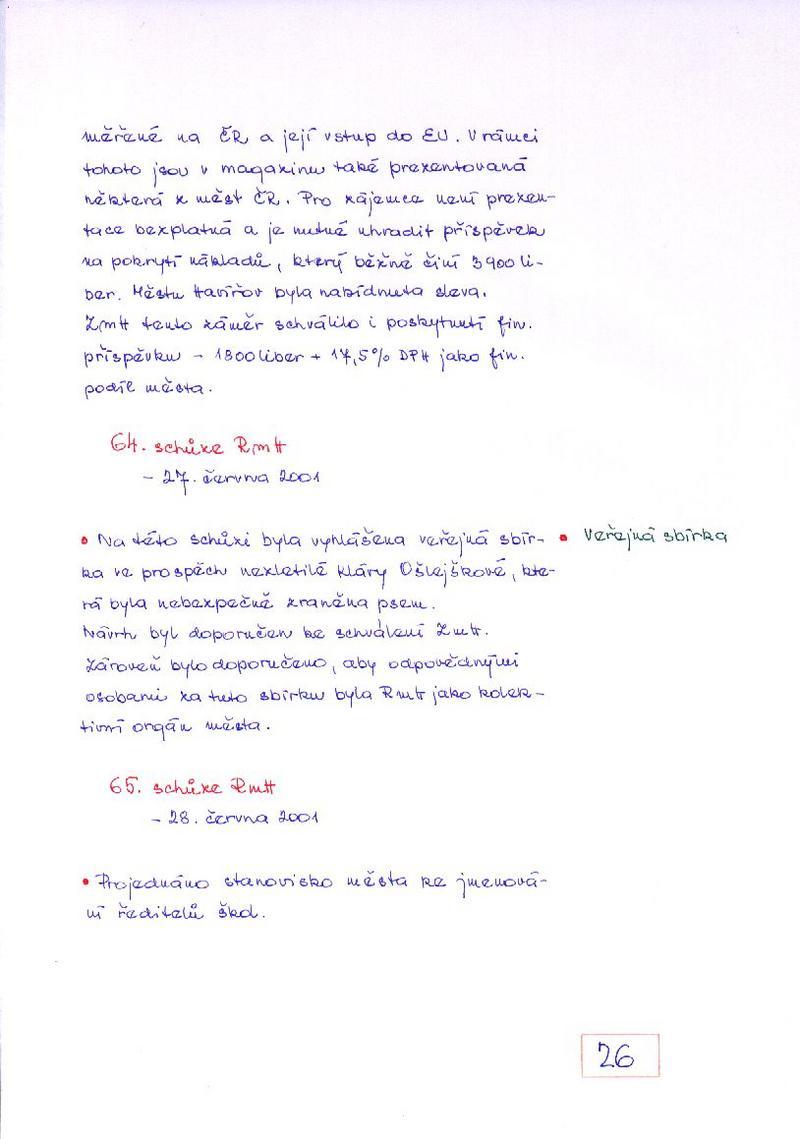 měřené na ČR a její vstup do EU. V rámci
tohoto jsou v magazinu také prezentovaná
některá z měst ČR. Pro zájemce není prezen-
tace bezplatná a je nutné uhradit příspěvek
na pokrytí nákladů, který běžně činí 3900 li-
ber. Městu Havířov byla nabídnuta sleva.
ZmH tento záměr schválilo i poskytnutí fin.
příspěvku - 1800 liber + 17,5% DPH jako fin.
podíl města.
64. schůze RmH
- 27. června 2001
• Na této schůzi byla vyhlášena veřejná sbír- • Veřejná sbírka
ka ve prospěch nezletilé Kláry Ošlejškové, kte-
rá byla nebezpečně zraněna psem.
Návrh byl doporučen ke schválení ZmH.
Zároveň bylo doporučeno, aby odpovědnými
osobami za tuto sbírku byla RmH jako kolek-
tivní orgán města.
65. schůze RmH
- 28. června 2001
• Projednáno stanovisko města ke jmenová-
ní ředitelů škol.
26